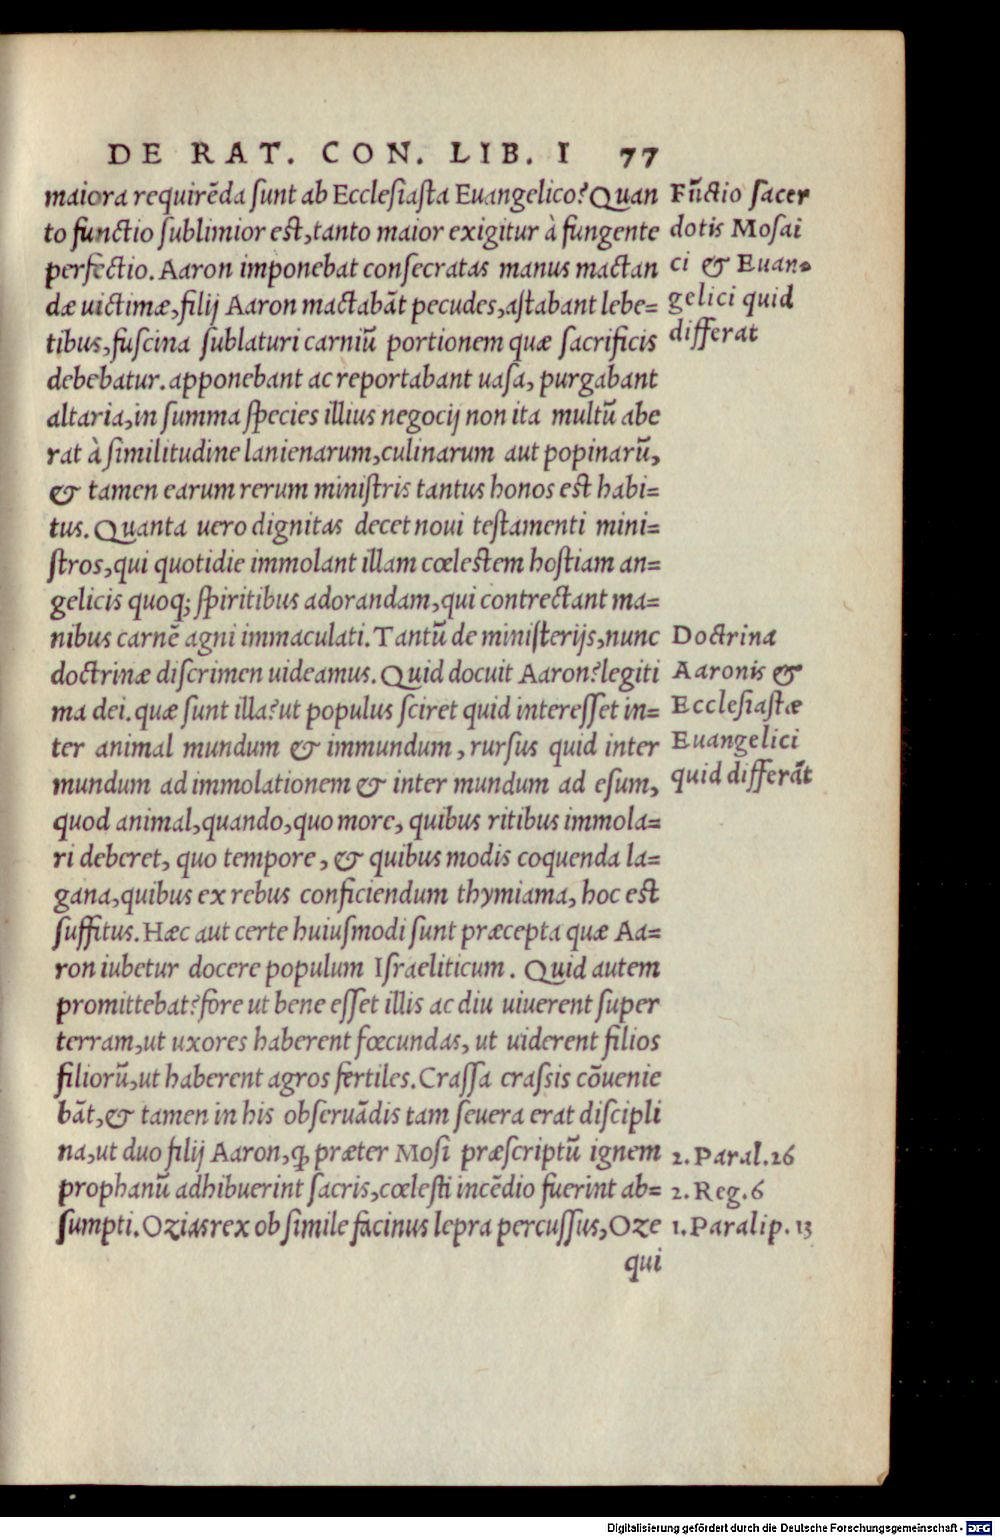 DE RAT. CON. LIB. I 77
maiora requirẽda sunt ab Ecclesiasta Euangelico? Quan
to functio sublimior est, tanto maior exigitur à fungente
perfectio. Aaron imponebat consecratas manus mactan
dæ uictimæ, filij Aaron mactabãt pecudes, astabant lebe=
tibus, fuscina sublaturi carniũ portionem quæ sacrificis
debebatur. apponebant ac reportabant uasa, purgabant
altaria, in summa species illius negocij non ita multũ abe
rat à similitudine lanienarum, culinarum aut popinarũ,
& tamen earum rerum ministris tantus honos est habi=
tus. Quanta uero dignitas decet noui testamenti mini=
stros, qui quotidie immolant illam cœlestem hostiam an=
gelicis quoq; spiritibus adorandam, qui contrectant ma=
nibus carnẽ agni immaculati. Tantũ de ministerijs, nunc
doctrinæ discrimen uideamus. Quid docuit Aaron? legiti
ma dei. quæ sunt illa? ut populus sciret quid interesset in=
ter animal mundum & immundum, rursus quid inter
mundum ad immolationem & inter mundum ad esum,
quod animal, quando, quo more, quibus ritibus immola=
ri deberet, quo tempore, & quibus modis coquenda la=
gana, quibus ex rebus conficiendum thymiama, hoc est
suffitus. Hæc aut certe huiusmodi sunt præcepta quæ Aa=
ron iubetur docere populum Israeliticum. Quid autem
promittebat? fore ut bene esset illis ac diu uiuerent super
terram, ut uxores haberent fœcundas, ut uiderent filios
filiorũ, ut haberent agros fertiles. Crassa crassis cõuenie
bãt, & tamen in his obseruãdis tam seuera erat discipli
na, ut duo filij Aaron, ꝙ præter Mosi præscriptũ ignem
prophanũ adhibuerint sacris, cœlesti incẽdio fuerint ab=
sumpti. Ozias rex ob simile facinus lepra percussus, Oze
qui
Fũctio sacer
dotis Mosai
ci & Euan=
gelici quid
differat
Doctrina
Aaronis &
Ecclesiastæ
Euangelici
quid differãt
2. Paral. 26
2. Reg. 6
1. Paralip. 13
Digitalisierung gefördert durch die Deutsche Forschungsgemeinschaft - DFG